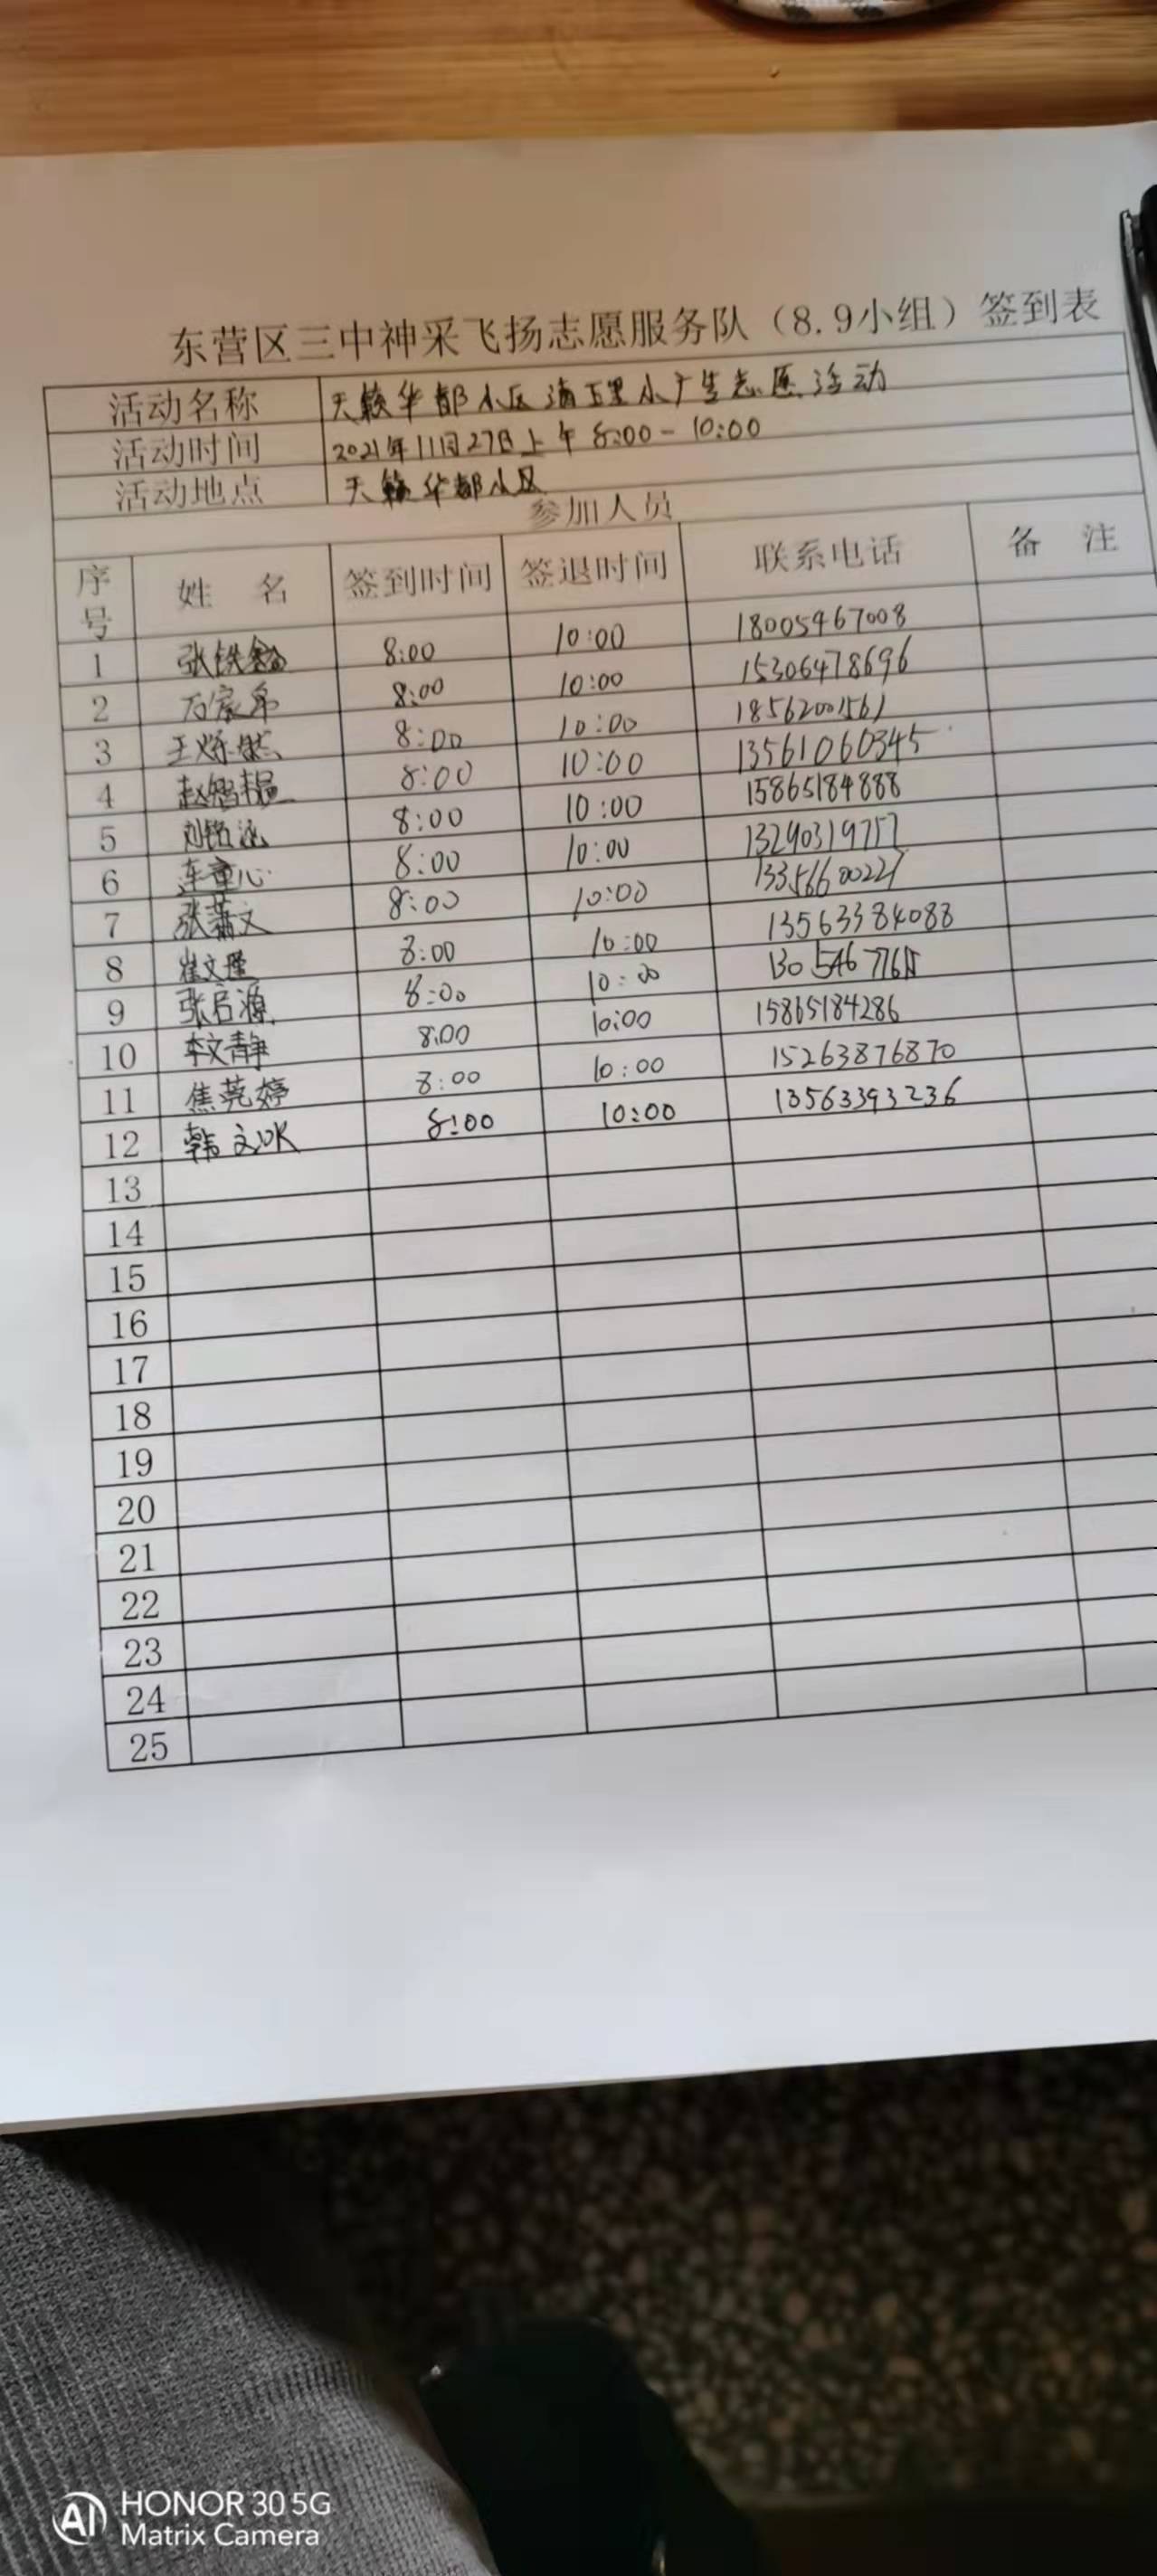 东营区三中神采飞扬志愿服务队（8.9小组）签到表
活动名称 天籁华都小区清 小广 志愿活动
活动时间 2021年11月27日上午 8:00-10:00
活动地点 天籁华都小区
参加人员
序号 姓 名 签到时间 签退时间 联系电话 备 注
1 张铁鑫 8:00 10:00 18005467008
2 8:00 10:00 15306478696
3 王烁然 8:00 10:00 18562001561
4 赵 8:00 10:00 13561060345
5 刘铭涵 8:00 10:00 15865184888
6 连童心 8:00 10:00 13290319757
7 张蕭文 8:00 10:00 13356600221
8 崔文瑾 8:00 10:00 13563384088
9 张启源 8:00 10:00
10 李文静 8:00 10:00 15865184286
11 焦莞婷 8:00 10:00 15263876870
12 韩 8:00 10:00 13563393236
13
14
15
16
17
18
19
20
21
22
23
24
25
HONOR 30 5G
Matrix Camera